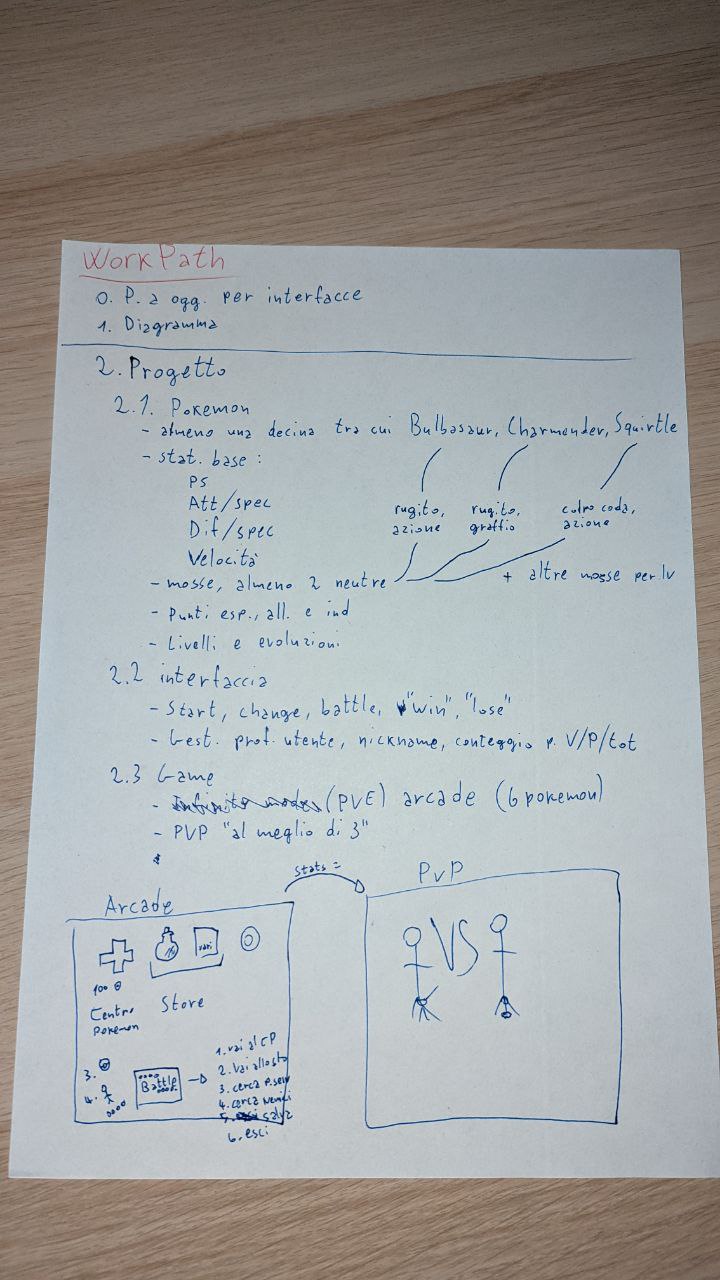 WorkPath
0. P. a ogg. per interfacce
1. Diagramma
2. Progetto
2.1. Pokemon
- almeno una decina tra cui Bulbasaur, Charmender, Squirtle
- stat. base :
PS
Att/spec
Dif/spec
Velocità
rugito, azione
rugito, graffio
colpo coda, azione
- mosse, almeno 2 neutre + altre mosse per lv
- Punti esp., all. e ind
- Livelli e evoluzioni
2.2 interfaccia
- Start, change, battle, "win", "lose"
- Gest. prof. utente, nickname, conteggio p. V/P/tot
2.3 Game
- Infinite mode (PVE) arcade (6 pokemon)
- PVP "al meglio di 3"
stats =
Arcade
vari
100
Centro Pokemon
Store
3.
4.
Battle
1. vai al CP
2. vai allo sto
3. cerca P. selv
4. cerca nemici
5. salva
6. esci
PvP
VS